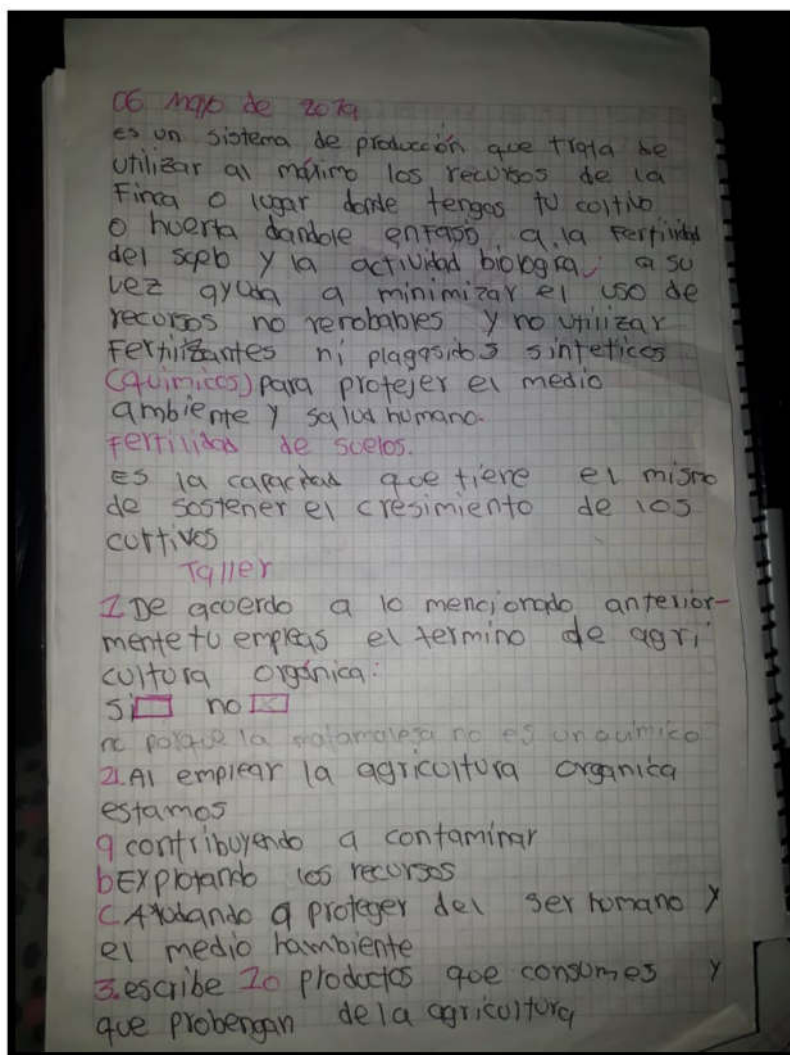 06 mayo de 2019
es un sistema de producción que trata de
utilizar al máximo los recursos de la
Finca o lugar donde tengas tu coltivo
o huerta dandole enfasis a la Fertilidad
del y la actividad a su
vez ayuda a minimizar el uso de
recursos no renobables y no utilizar
Fertilizantes ni plagasidas sinteticos
(quimicos) para protejer el medio
ambiente y salud humano.
Fertilidad de suelos.
Es la capacidad que tiene el mismo
de sostener el cresimiento de los
cultivos
Taller
1 De acuerdo a lo mencionado anterior-
mente tu empleas el termino de agri
cultura orgánica:
Si no
no porque la no es un quimico
2. Al emplear la agricultura organica
estamos
a contribuyendo a contaminar
b Explotando los recursos
C Ayudando a proteger del ser homano y
el medio hambiente
3. escribe 10 ploductos que consumes y
que probengan de la agricultura